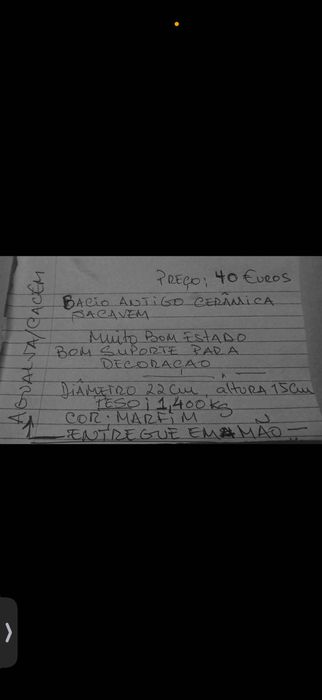 PREÇO; 40 EUROS
BACIO ANTIGO CERÂMICA
SACAVEM
MUITO BOM ESTADO
BOM SUPORTE PARA
DECORAÇAO
DIÂMETRO 22 Cm, altURA 15 Cm
PESO; 1,400 kg
COR; MARFIM
ENTREGUE EM MÃO
AGUALVA/CACÉM